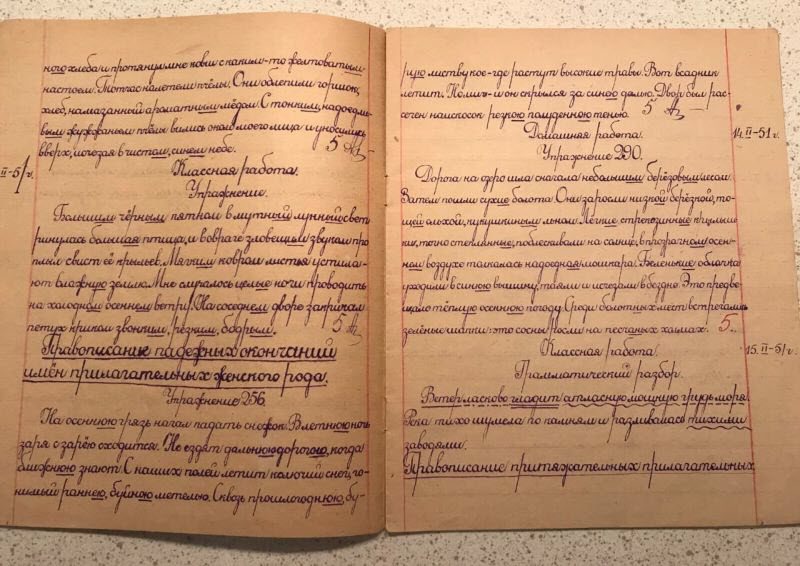 ного хлеба и протянул мне ковш с каким-то желтоватым
настоем. Тотчас налетели пчёлы. Они облепили горшок,
хлеб, намазанный ароматным мёдом. С тонким, надоедли-
вым жужжаньем пчёлы вились около моего лица и уносились
вверх, исчезая в чистом, синем небе. 5
Классная работа.
II-51 г.
Упражнение.
Большим чёрным пятном в мутный лунный свет
ринулась большая птица, и в овраге зловещем звуком про
плыл свист её крыльев. Мягким ковром листья устила-
ют влажную землю. Мне случалось целые ночи проводить
на холодном осеннем ветру. На соседнем дворе закричал
петух криком звонким, резким, бодрым. 5
Правописание падежных окончаний
имён прилагательных женского рода.
Упражнение 256.
На осеннюю грязь начал падать снежок. В летнюю ночь
заря с зарёю сходится. Не ездят дальнюю дорогою, когда
ближнюю знают. С наших полей летит колючий снег, го-
нимый раннею, буйною метелью. Сквозь прошлогоднюю, бу-
рую листву кое-где растут высокие травы. Вот всадник
летит. Помиг- и он скрылся за синюю далью. Двор был рас-
сечен наискосок резкою полуденною тенью. 5
Домашняя работа. 14. II-51 г.
Упражнение 290.
Дорога на озеро шла сначала небольшим берёзовым лесом.
Затем пошли сухие болота. Они заросли низкой берёзкой, то-
щей ольхой, кукушкиным льном. Лёгкие стрекозиные крылыш-
ки, точно стеклянные, поблескивали на солнце, в прозрачном осен-
нем воздухе толкалась надоедная мошкара. Беленькие облачка
уходили в синюю вышину, таяли и исчезали в бездне. Это предве-
щало тёплую осеннюю погоду. Среди болотных мест встречались
зелёные шапки: это сосны росли на песчаных холмах. 5.
Классная работа. 15. II-51 г.
Грамматический разбор.
Ветер ласково гладит атласную мощную грудь моря.
Река тихо шумела по камням и разливалась тихими
заводями.
Правописание притяжательных прилагательных